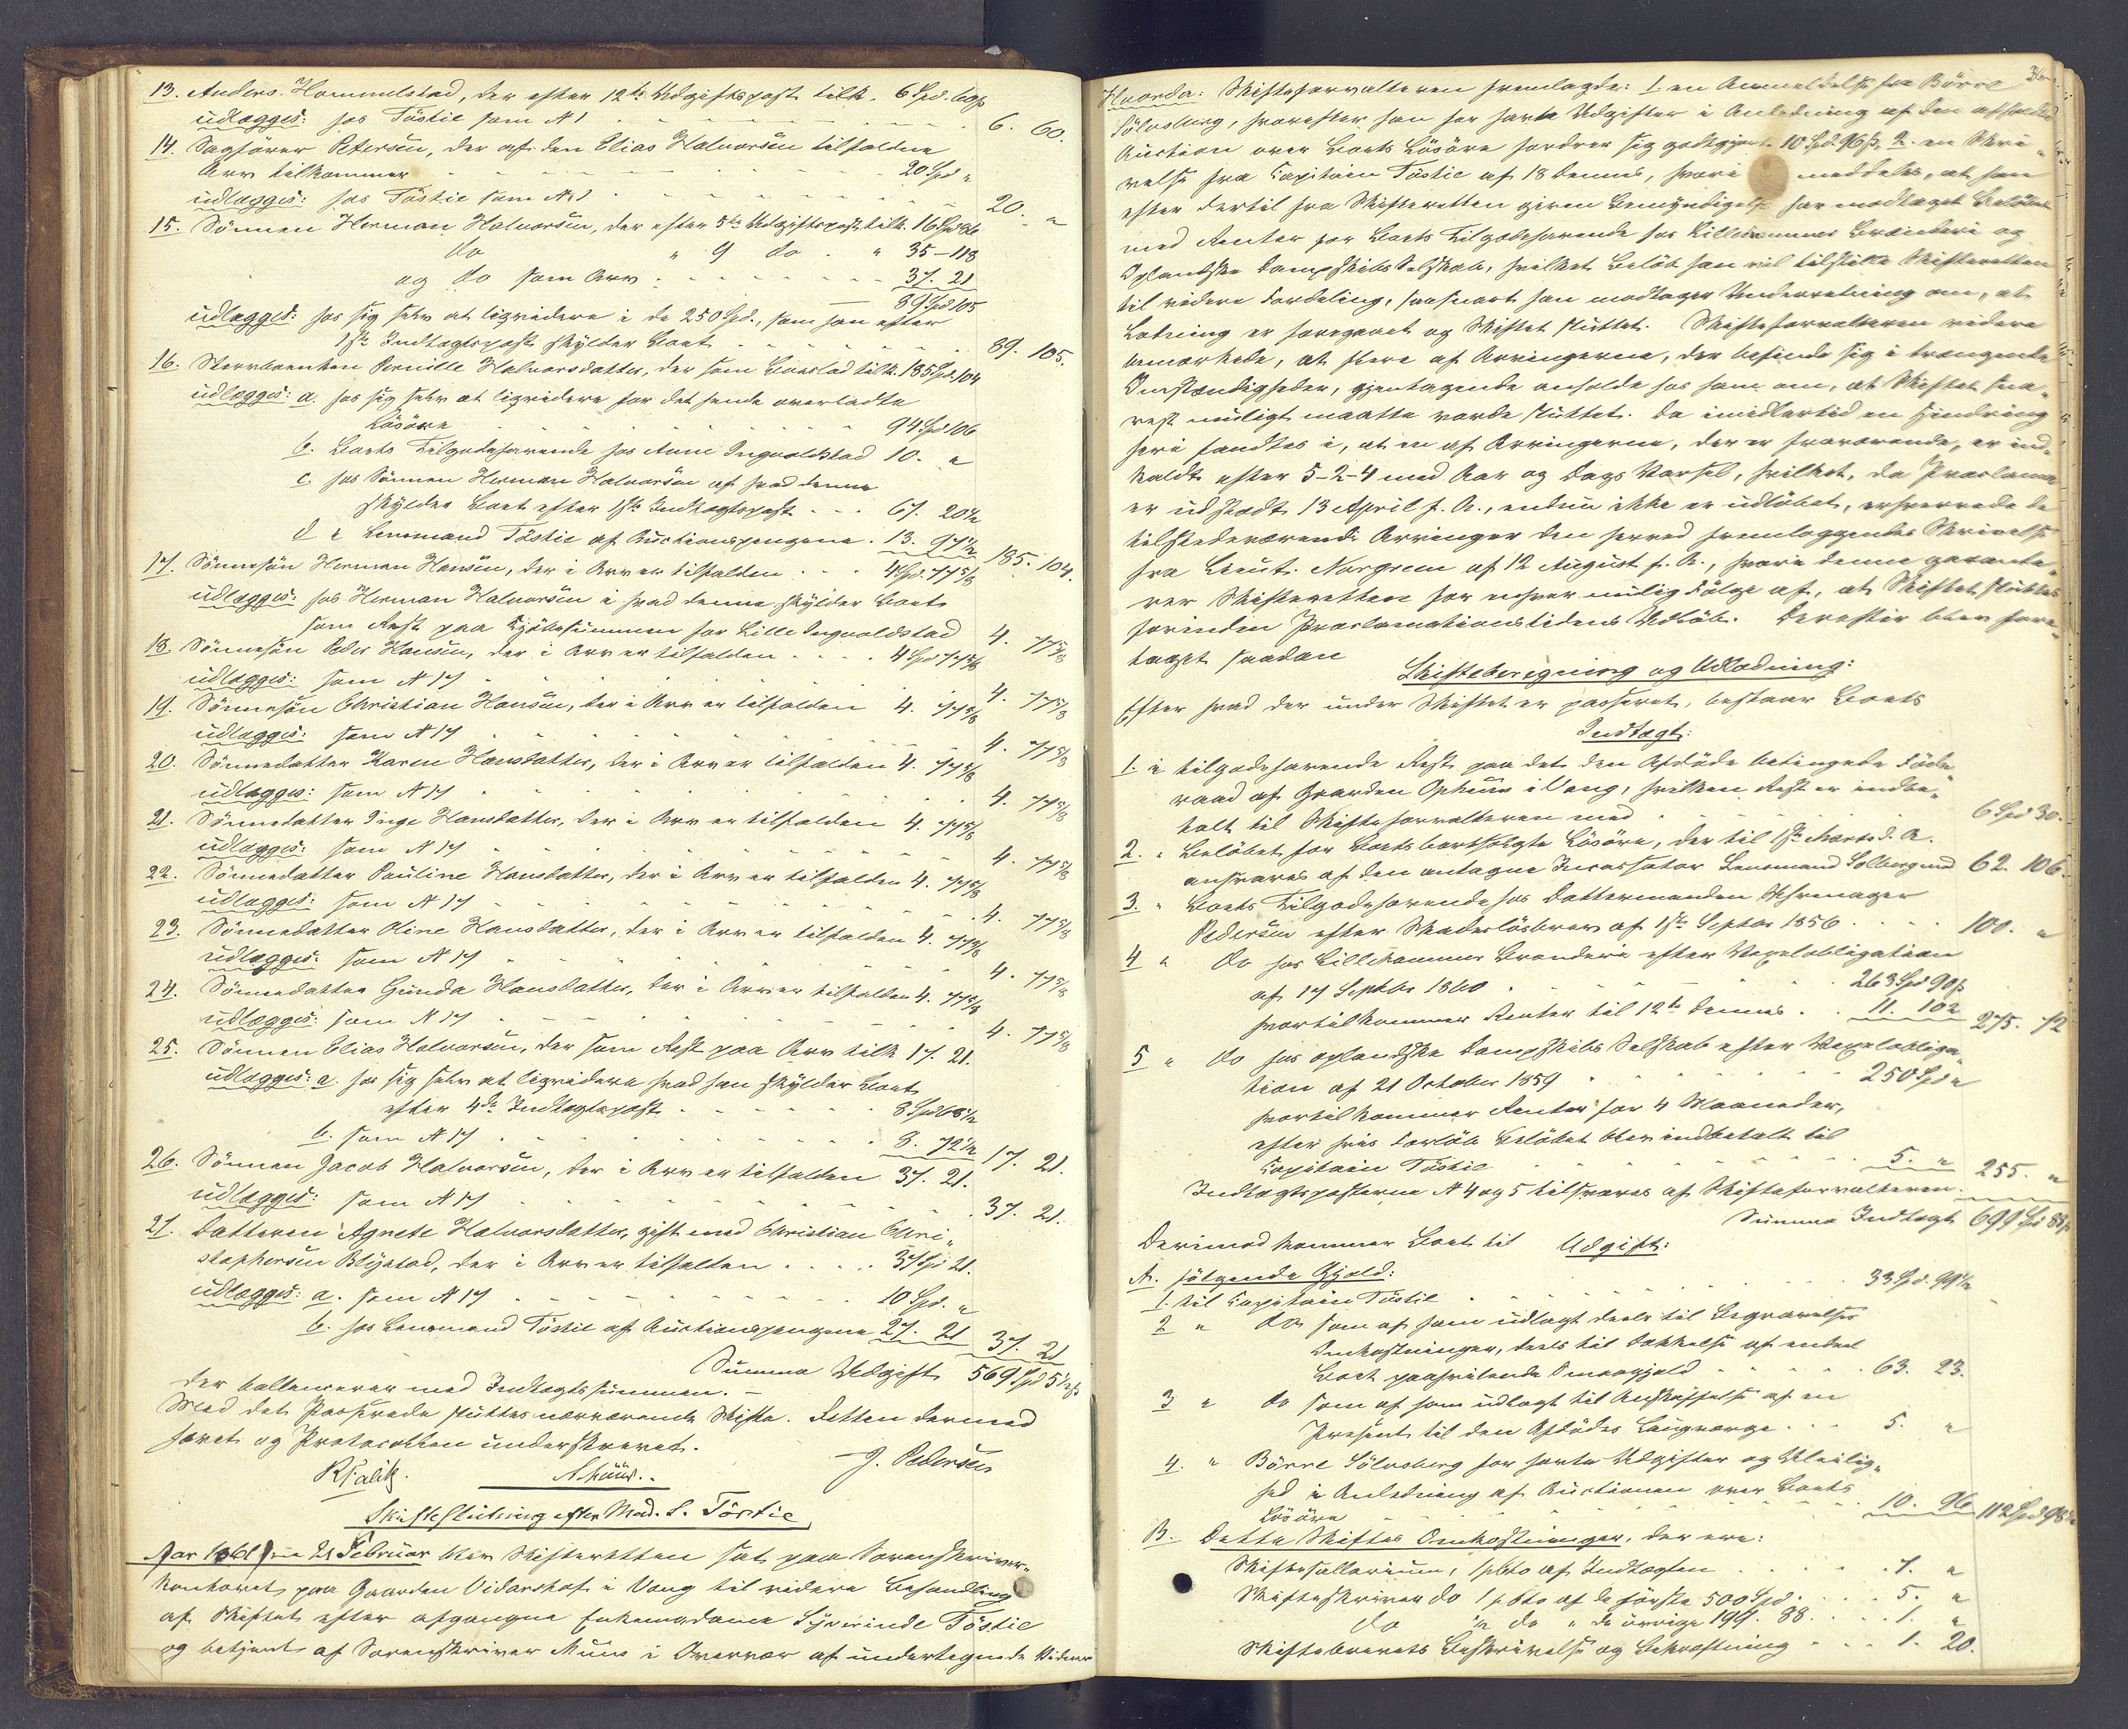 13. Anders Hommelstad, der efter 12te Udgiftspost tilk. 6 Spd. 60 ß
udlægges: hos Töstie som № 1 . . . 6. 60.
14. Sagförer Petersen, der af den Elias Halvorsen tilfaldne
Arv tilkommer . . . 20 Spd "
udlægges: hos Töstie som № 1 . . . 20. "
15. Sönnen Herman Halvorsen, der efter 5te Udgiftspost tilk. 16 Spd 86
do " 9 do . " 35-118
og do som Arv . . . 37. 21
89 Spd 105
udlægges: hos sig selv at liqvidere i de 250 Spd., som han efter
1ste Indtægtspost skylder Boet . . . 89. 105.
16. Stervboenken Pernille Halvorsdatter, der som Boeslod tilk. 185 Spd. 104
udlægges: a. hos sig selv at liqvidere for det hende overladte
Lösöre . . . 94 Spd 106
b. Boets Tilgodehavende hos Anne Ingvoldstad 10. "
c. hos Sönnen Herman Halvorsen af hvad denne
skylder Boet efter 1ste Indtægtspost . . . 67. 20½
d " Lensmand Töstie af Auctionspengene . 13. 97½ 185. 104.
17. Sönnesön Herman Hansen, der i Arv er tilfalden . . . 4 Spd. 77⅝
udlægges: hos Herman Halvorsen i hvad denne skylder Boet
som Rest paa Kjöbesummen for Lille Ingvoldstad 4. 77⅝
18. Sönnesön Peder Hansen, der i Arv er tilfalden . . . 4 Spd 77⅝
udlægges: som № 17 . . . 4. 77⅝
19. Sönnesön Christian Hansen, der i Arv er tilfalden 4. 77⅝
udlægges: som № 17 . . . 4. 77⅝
20. Sönnedatter Karen Hansdatter, der i Arv er tilfalden 4. 77⅝
udlægges: som № 17 . . . 4. 77⅝
21. Sönnedatter Inge Hansdatter, der i Arv er tilfalden 4. 77⅝
udlægges: som № 17 . . . 4. 77⅝
22. Sönnedatter Pauline Hansdatter, der i Arv er tilfalden 4. 77⅝
udlægges: som № 17 . . . 4. 77⅝
23. Sönnedatter Oline Hansdatter, der i Arv er tilfalden 4. 77⅝
udlægges: som № 17 . . . 4. 77⅝
24. Sönnedatter Gunda Hansdatter, der i Arv er tilfalden 4. 77⅝
udlægges: som № 17 . . . 4. 77⅝
25. Sönnen Elias Halvorsen, der som Rest paa Arv tilk 17. 21.
udlægges: a. hos sig selv at liqvidere hvad han skylder Boet
efter 4de Indtægtspost . . . 8 Spd 68½
b. som № 17 . . . 8. 72½ 17. 21.
26. Sönnen Jacob Halvorsen, der i Arv er tilfalden 37. 21.
udlægges: som № 17 . . . 37. 21.
27. Datteren Agnete Halvorsdatter, gift med Christian Chri„
stophersen Blystad, der i Arv er tilfalden . . . 37 Spd 21.
udlægges: a. som № 17 . . . 10 Spd. "
b. hos Lensmand Töstie af Auctionspengene 27. 21 37. 21
Summa Udgift 569 Spd 5½ ß
der ballancerer med Indtægtssummen. –
Med det Passerede sluttes nærværende Skifte. Retten dermed
hævet og Protocollen underskrevet.
J. Pedersen
Skifteslutning efter Mad. S. Töstie,
Aar 1861 den 21 Februar blev Skifteretten sat paa Sorenskriver„
kontoret paa Gaarden Vidarshof i Vang til videre Behandling
af Skiftet efter afgangne Enkemadame Syverinde Töstie
og betjent af Sorenskriver Muns i Overvær af undertegnede Vidner
Hvorda: Skifteforvalteren fremlagde: 1. en Anmeldelse fra Börre
Sölvsberg, hvorefter han for havte Udgifter i Anledning af den afholdte
Auction over Boets Lösöre fordrer sig godtgjort 10 Spd. 96 ß, 2. en Skri„
velse fra Capitain Töstie af 18 dennes, hvori meddeles, at han
efter dertil fra Skifteretten given Bemyndigelse har modtaget Belöbet
med Renter for Boets Tilgodehavende hos Lillehammers Brænderi og
Oplandske Dampskibs Selskab, hvilket Belöb han vil tilstille Skifteretten
til videre Fordeling, saasnart han modtager Underretning om, at
Lodning er foregaaet og Skiftet sluttet. Skifteforvalteren videre
bemærkede, at flere af Arvingerne, der befinde sig i trængende
Omstændigheder, gjentagende anholdt hos ham om, at Skiftet sna„
rest muligt maatte vorde sluttet. Da imidlertid en Hindring
heri fandtes i, at en af Arvingerne, der er fraværende, er ind„
kaldt efter 5-2-4 med Aar og Dags Varsel, hvilket, da Proclama
er udstædt 13 April f. A., endnu ikke er udlöbet, erhvervede de
tilstedeværende Arvinger den herved fremlæggende Skrivelse
fra Lieut. Norgreen af 12 August f. A., hvori denne garante„
rer Skifteretten for enhver mulig Fölge af, at Skiftet sluttes
forinden Proclamationstidens Udlöb. Derefter blev fore„
taget saadan
Skifteberegning og Udlodning:
Efter hvad der under Skiftet er passeret, bestaar Boets
Indtægt:
1. i tilgodehavende Rest paa det den Afdöde betingede Föde„
raad af Gaarden Ophuus i Vang, hvilken Rest er indbe„
talt til Skifteforvalteren med . . . 6 Spd 30.
2. " Belöbet for Boets bortsolgte Lösöre, der til 1ste Marts d. A.
ansvares af den antagne Incassator Lensmand Solberg med 62. 106
3. " Boets Tilgodehavende hos Dattermanden Uhrmager
Pedersen efter Skadeslösbrev af 1ste Septbr 1856 . . . 100. "
4 " Do hos Lillehammer Brænderi efter Vexelobligation
af 17 Septbr 1860 . . . 263 Spd 90 ß
hvortil kommer Renter til 12te dennes . . 11. 102 275. 72
5 " Do hos oplandske Dampskibs Selskab efter Vexelobliga„
tion af 21 October 1859 . . . 250 Spd "
hvortil kommer Renter for 4 Maaneder,
efter hvis Forløb Belöbet blev indbetalt til
Capitain Töstie . . . 5. " 255. "
Indtægtsposterne № 4 og 5 tilsvares af Skifteforvalteren.
Summa Indtægt 699 Spd 88 ß
Derimod kommer Boet til Udgift:
A. fölgende Gjæld:
1. til Capitain Töstie . . . 33 Spd. 99½
2 " do som af ham udlagt deels til Begravelses
Omkostninger, deels til Dækkelse af endeel
Boet paahvilende Smaagjæld . . . 63. 23.
3 " do som af ham udlagt til Anskaffelse af en
Present til den Afdödes Laugværge . . . 5. "
4. " Börre Sölvsberg for havte Udgifter og Uleilig„
hed i Anledning af Auctionen over Boets
Lösöre . . . 10. 96 112 Spd 98½
B. Dette Skiftes Omkostninger, der ere:
Skiftesallarium, 1 pCto af Indtægten . . . 7. "
Skifteskriver do 1 pCto af de förste 500 Spd . . . 5. "
do ½ do " de övrige 199. 88 . . . 1. "
Skiftebrevets Beskrivelse og Bekræftning . . . 1. 20.